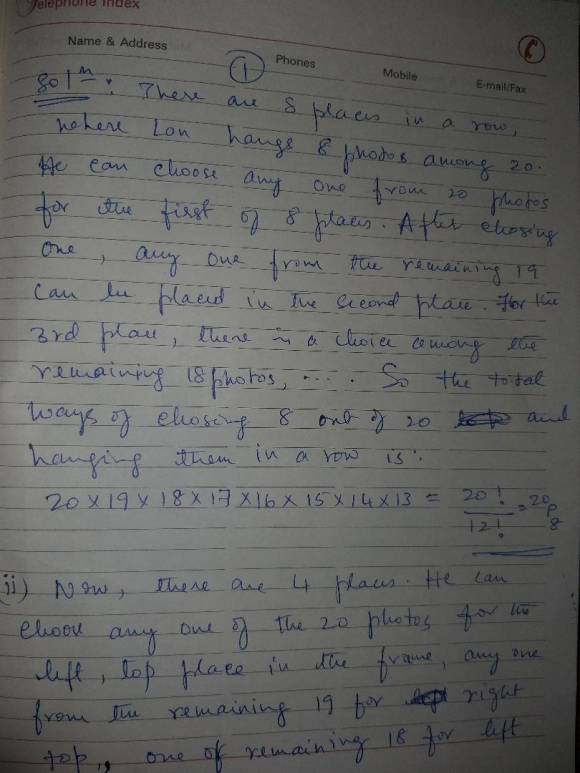 Telephone Index
Name & Address
Phones
Mobile
E-mail/Fax
1
Sol^n : There are 8 places in a row,
where Lon hangs 8 photos among 20.
He can choose any one from 20 photos
for the first of 8 places. After chosing
one, any one from the remaining 19
can be placed in the second place. For the
3rd place, there is a choice among the
remaining 18 photos, .... So the total
ways of chosing 8 out of 20 and
hanging them in a row is:
20 × 19 × 18 × 17 × 16 × 15 × 14 × 13 = 20!/12! = 20P8
(ii) Now, there are 4 places. He can
choose any one of the 20 photos for the
left, top place in the frame, any one
from the remaining 19 for right
top, one of remaining 18 for left